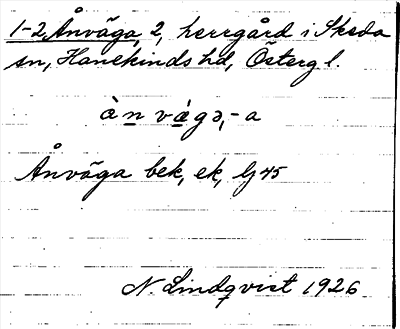 1-2 Ånväga, 2, herrgård i Skeda
sn, Hanekinds hd, Östergl.
ȧ n vȧgə, -a
Ånväga bek, ek, Gj 45
N. Lindqvist 1926